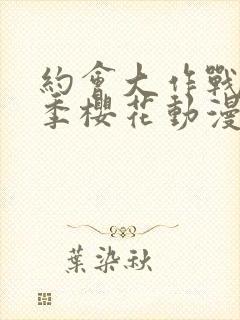 約會大作戰
季櫻花動漫
葉染秋